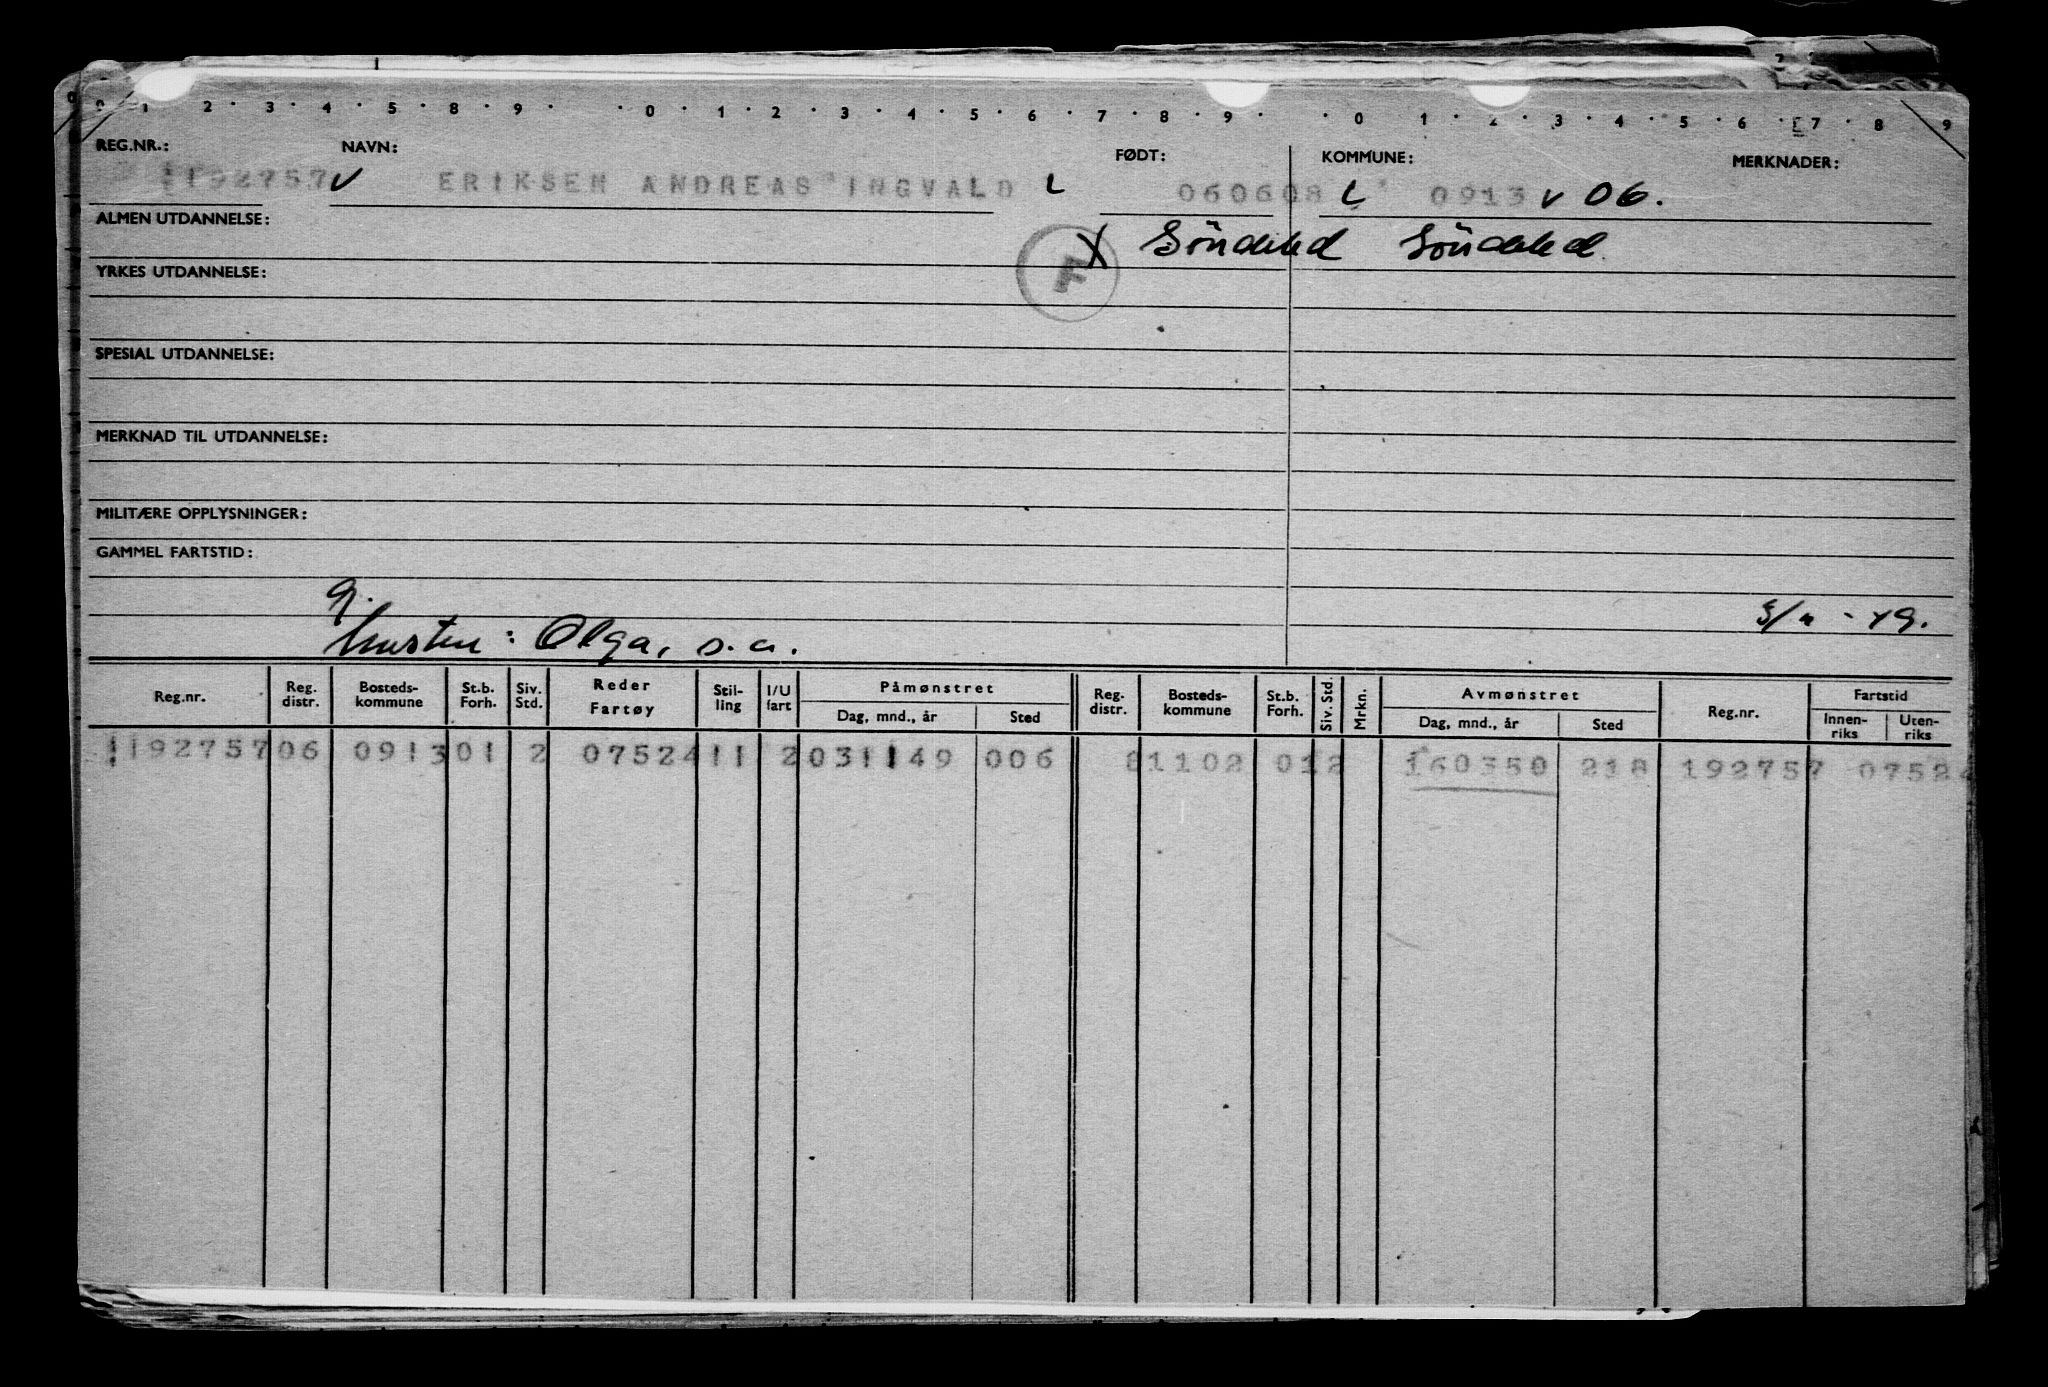 0 1 · 2 · 3 · 4 · 5 · 8 · 9 · · 0 · 1 · 2 · 3 · 4 · 5 · 6 · 7 · 8 · 9 · · 0 · 1 · 2 · 3 · 4 · 5 · 6 · 7 · 8 9
REG.NR.: NAVN: FØDT: KOMMUNE: MERKNADER:
192757 v ERIKSEN ANDREAS INGVALD 060608 0913 v 06.
ALMEN UTDANNELSE: X Söndeled Söndeled
F
YRKES UTDANNELSE:
SPESIAL UTDANNELSE:
MERKNAD TIL UTDANNELSE:
MILITÆRE OPPLYSNINGER:
GAMMEL FARTSTID:
g.
Hustru: Olga, s.a.
Reg.nr. Reg. distr. Bosteds-kommune St.b. Forh. Siv. Std. Reder Fartøy Stil-ling I/U fart Påmønstret Dag, mnd., år Sted Reg. distr. Bosteds-kommune St.b. Forh. Siv. Std. Mrkn. Avmønstret Dag, mnd., år Sted Reg.nr. Fartstid Innen-riks Uten-riks
192757 06 0913 01 2 07524 11 2 031149 006 1102 01 2 160350 218 192757 07524